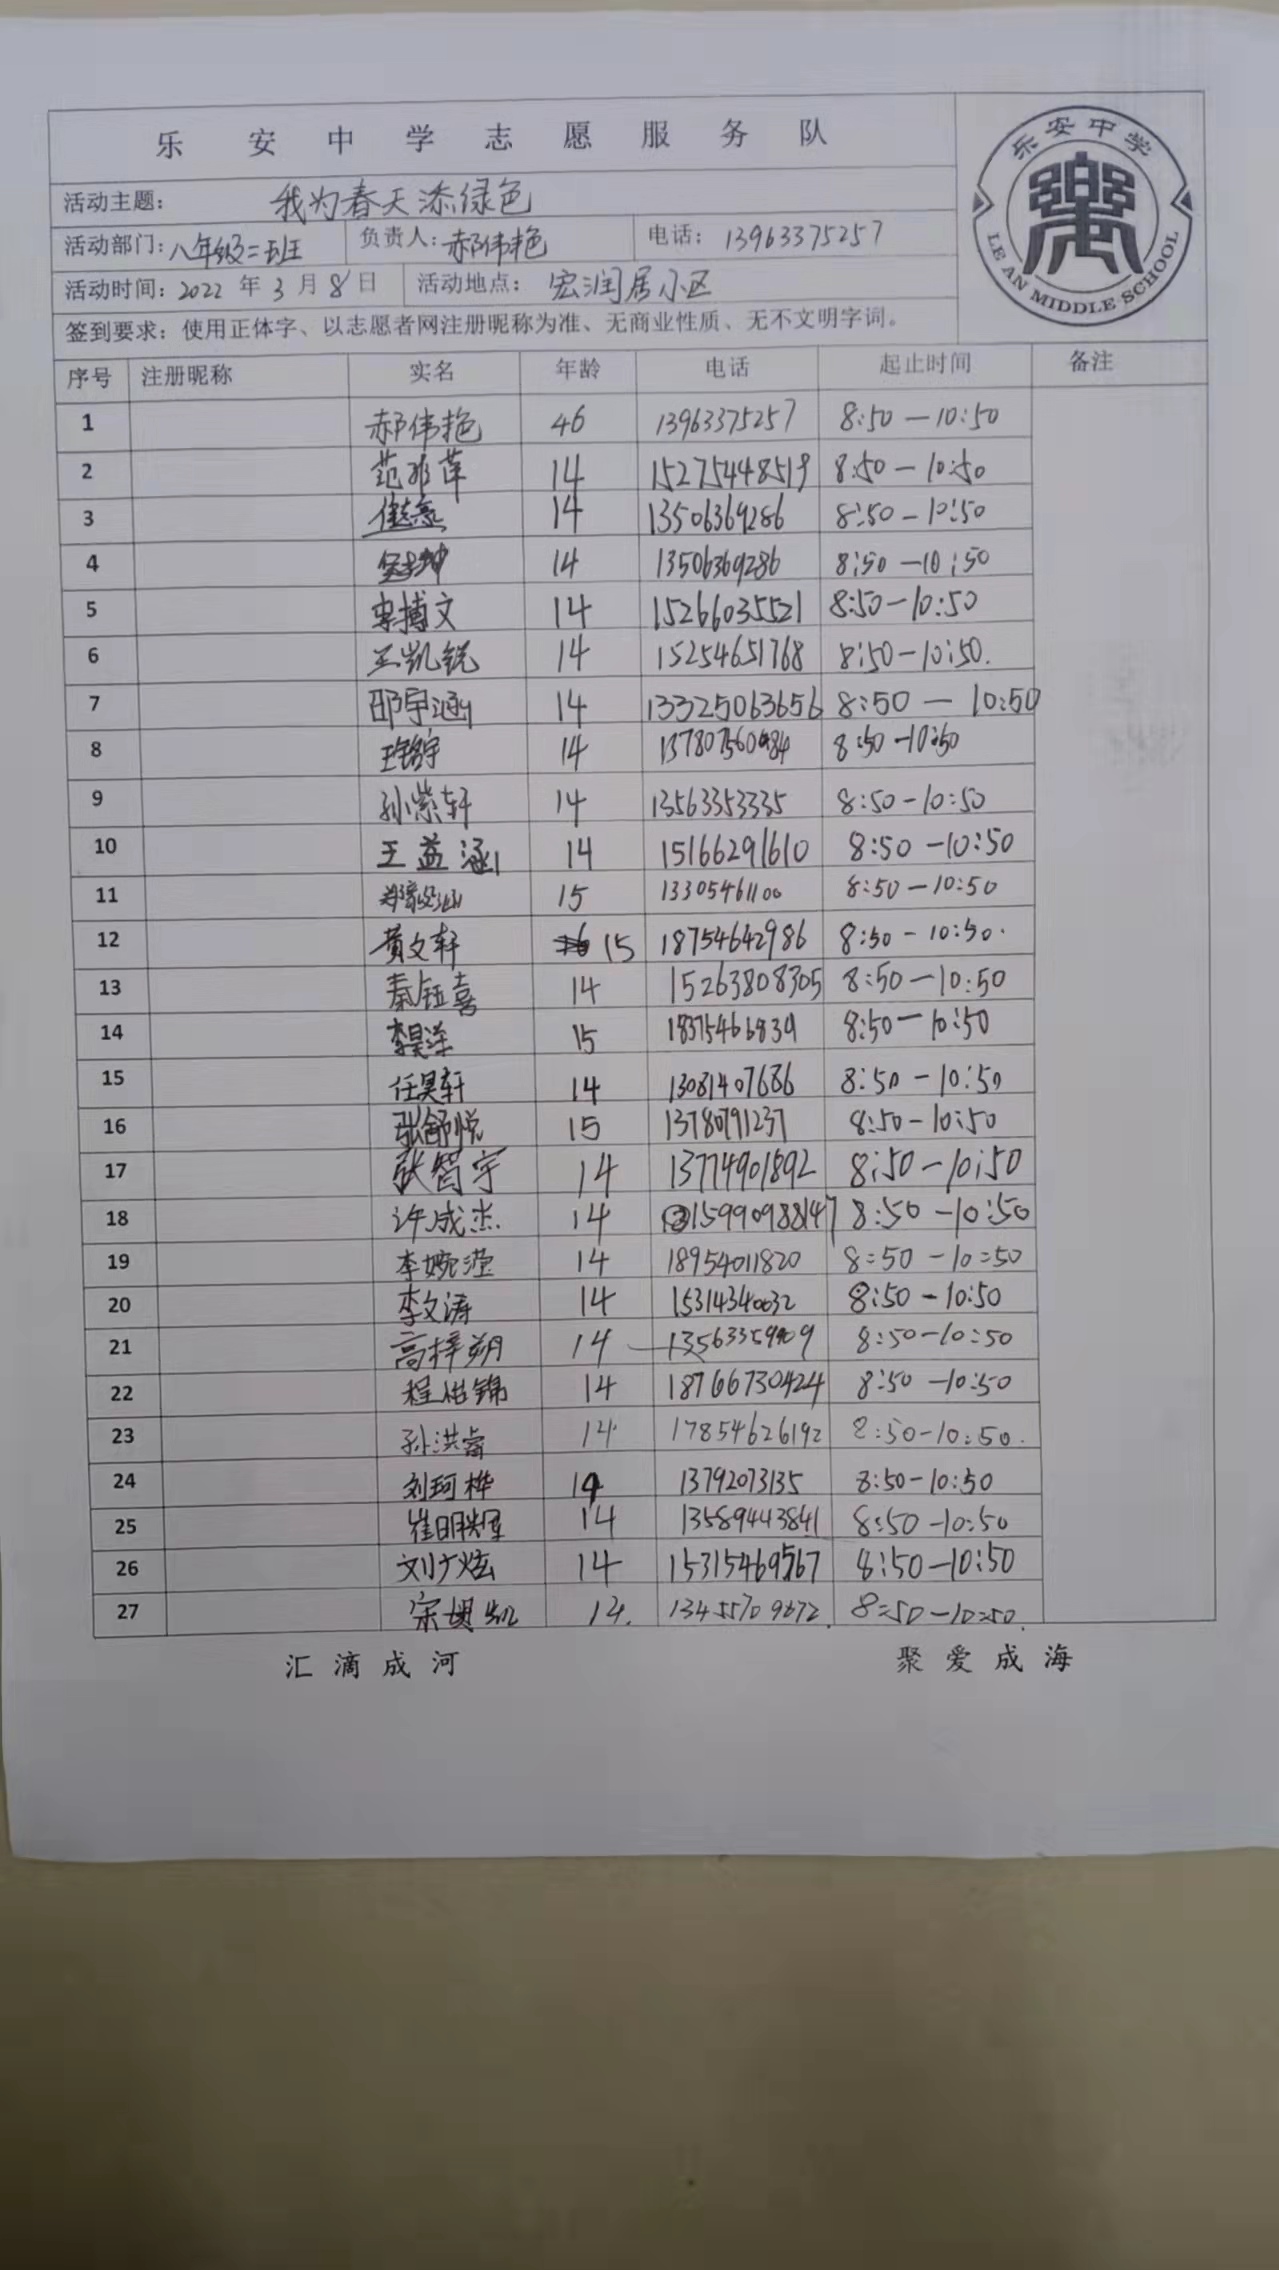 乐安中学志愿服务队
乐安中学
LE AN MIDDLE SCHOOL
活动主题: 我为春天添绿色
活动部门: 八年级二班 负责人: 郝伟艳 电话: 13963375257
活动时间: 2022年3月8日 活动地点: 宏润居小区
签到要求: 使用正体字、以志愿者网注册昵称为准、无商业性质、无不文明字词。
序号 注册昵称 实名 年龄 电话 起止时间 备注
1 郝伟艳 46 13963375257 8:50—10:50
2 14 15275448519 8:50—10:50
3 14 13506369286 8:50—10:50
4 14 13506369286 8:50—10:50
5 李搏文 14 15266035521 8:50—10:50
6 王凯锐 14 15254651768 8:50—10:50.
7 邵宇涵 14 133325063656 8:50—10:50
8 14 8:50—10:50
9 孙紫轩 14 13563353335 8:50—10:50
10 王益涵 14 15166291610 8:50—10:50
11 15 13305461100 8:50—10:50
12 黄文轩 15 18754642986 8:50—10:50.
13 秦钰喜 14 15263808305 8:50—10:50
14 15 18375466839 8:50—10:50
15 任昊轩 14 13081407686 8:50—10:50
16 张舒悦 15 13780791237 8:50—10:50
17 张智宇 14 13774901892 8:50—10:50
18 许成杰 14 15990988147 8:50—10:50
19 李婉滢 14 18954011820 8:50—10:50
20 李文涛 14 15314340032 8:50—10:50
21 高梓朔 14 8:50—10:50
22 14 18766730424 8:50—10:50
23 孙洪睿 14 17854626192 8:50—10:50.
24 刘珂桦 14 13792073135 8:50—10:50
25 14 13589443841 8:50—10:50
26 刘广炫 14 15315469567 8:50—10:50
27 14. 8:50—10:50.
汇滴成河 聚爱成海